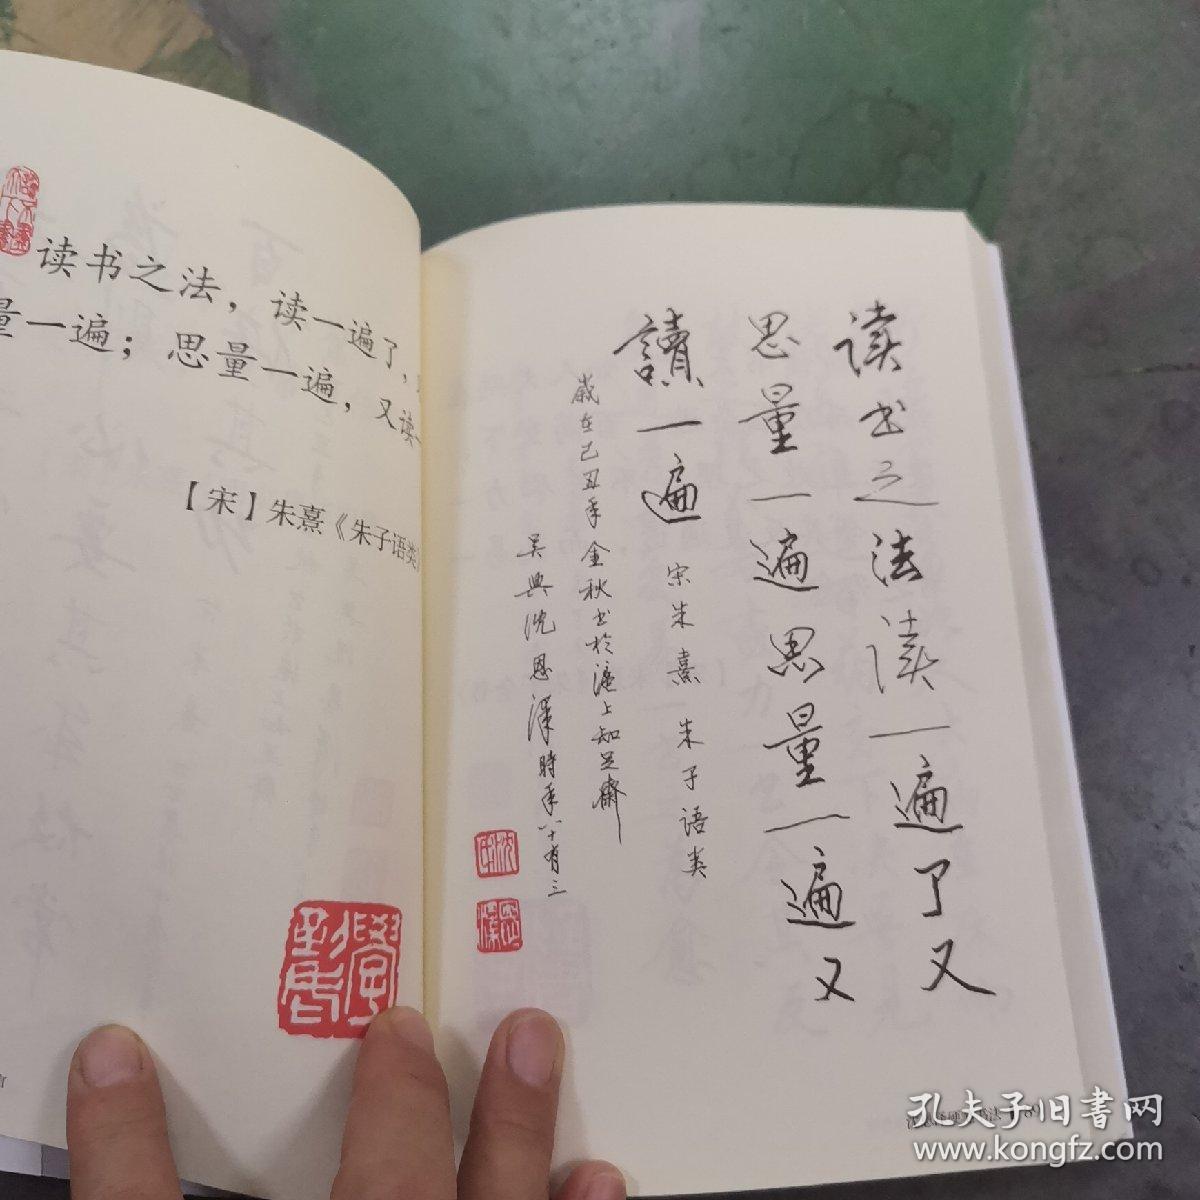 读书之法，读一遍了，
量一遍；思量一遍，又读
【宋】朱熹《朱子语类
读书之法读一遍了又
思量一遍思量一遍又
讀一遍 宋朱熹 朱子语类
岁在己丑年金秋书於滬上知足齋
吴興沈恩泽時年八十有三
孔夫子旧书网
www.kongfz.com